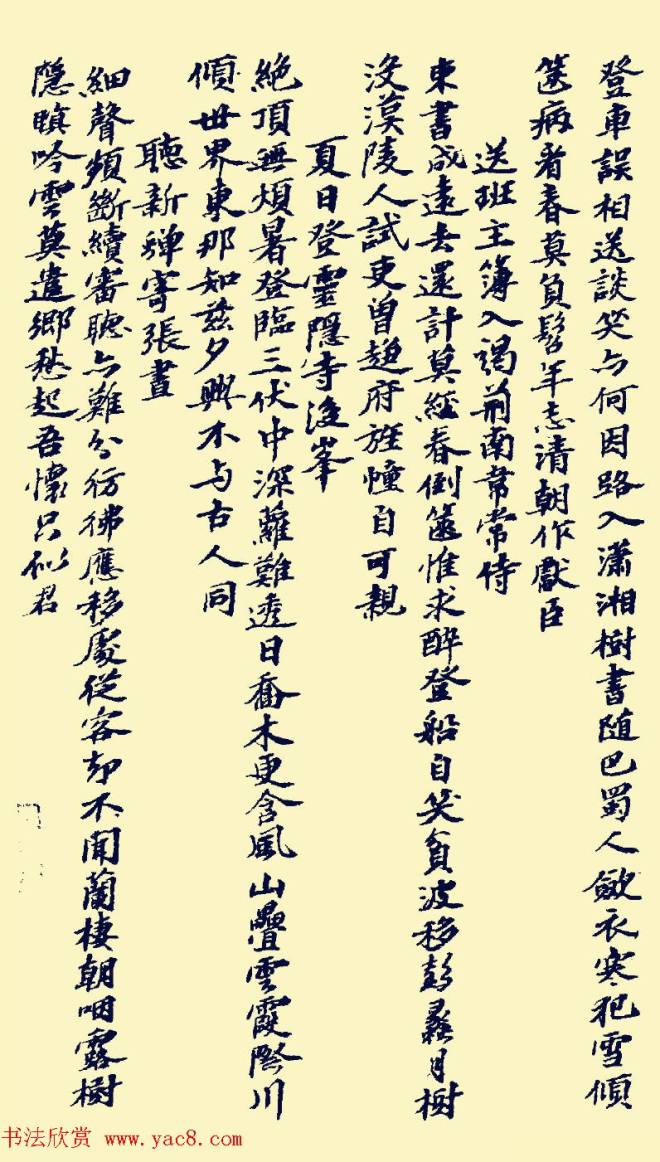 登車誤相送談笑与何因路入瀟湘樹書随巴蜀人斂衣寒犯雪傾
篋病看春莫負髫年志清朝作獻臣
送班主簿入謁荊南韋常侍
東書成遠去還計莫經春倒篋惟求醉登船自笑貧波移彭蠡月樹
沒漢陵人試吏曾趨府旌幢自可親
夏日登靈隱寺後峯
絶頂無煩暑登臨三伏中深蘿難透日喬木更含風山疊雲霞際川
傾世界東那知茲夕興不与古人同
聽新蟬寄張晝
細聲頻斷續審聽亦難分彷彿應移處從容却不聞蘭棲朝咽露樹
隱暝吟雲莫遣鄉愁起吾懷只似君
书法欣赏 www.yac8.com